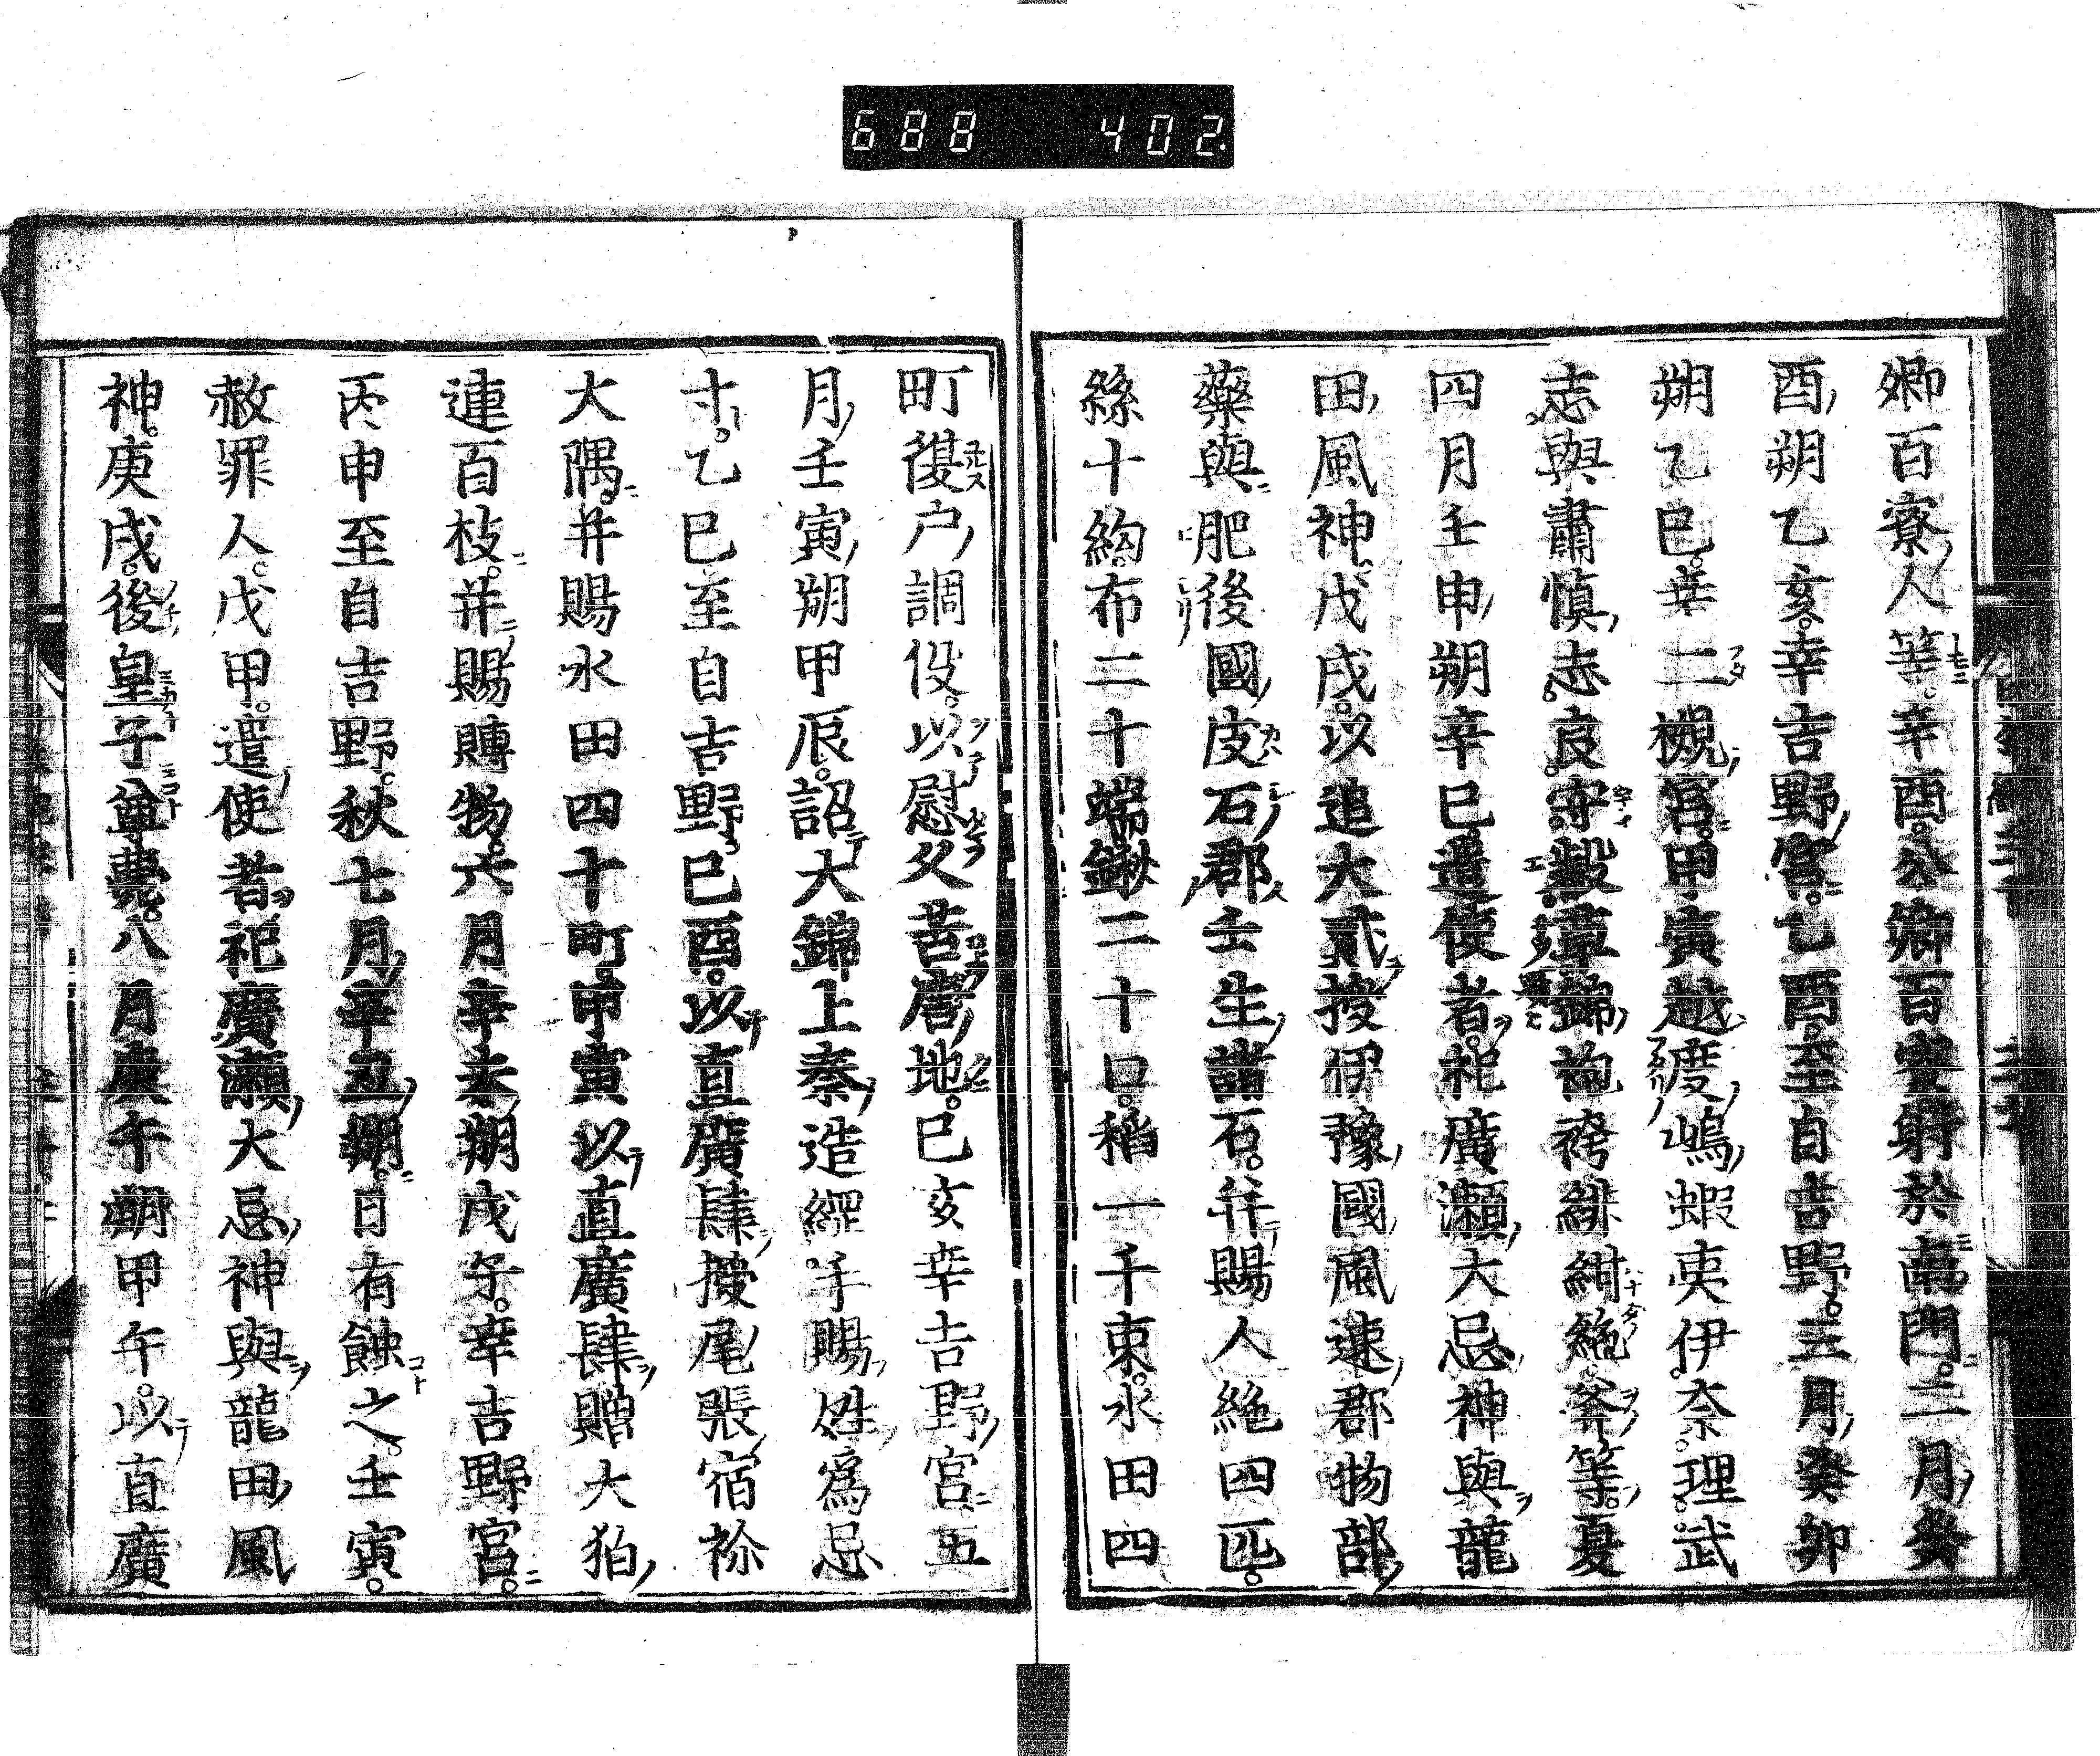 688 402.
卿百寮人等。辛酉。公卿百寮射於南門。二月癸
酉朔乙亥。幸吉野宮。乙酉。至自吉野。三月癸卯
朔乙巳。幸二槻宮。甲寅越度嶋蝦夷伊奈理武
志。與肅慎志良守叡草錦袍袴緋紺絁斧等。夏
四月壬申朔辛巳。遣使者。祀廣瀬大忌神與龍
田風神。戊戌。以追大貳授伊豫國風速郡物部
藥與肥後國皮石郡壬生諸石。并賜人絁四匹。
絲十絇。布二十端。鍬二十口。稻一千束。水田四
町復戸調役。以慰久苦唐地。己亥幸吉野宮。五
月壬寅朔甲辰。詔大錦上秦造綱手。賜姓爲忌
寸。乙巳至自吉野。己酉。以直廣肆授尾張宿祢
大隅。并賜水田四十町。甲寅以直廣肆贈大狛
連百枝。并賜賻物。六月辛未朔戊子。幸吉野宮。
丙申至自吉野。秋七月辛丑朔。日有蝕之。壬寅。
赦罪人。戊甲。遣使者祀廣瀬大忌神與龍田風
神。庚戌。後皇子尊薨。八月庚午朔甲午。以直廣